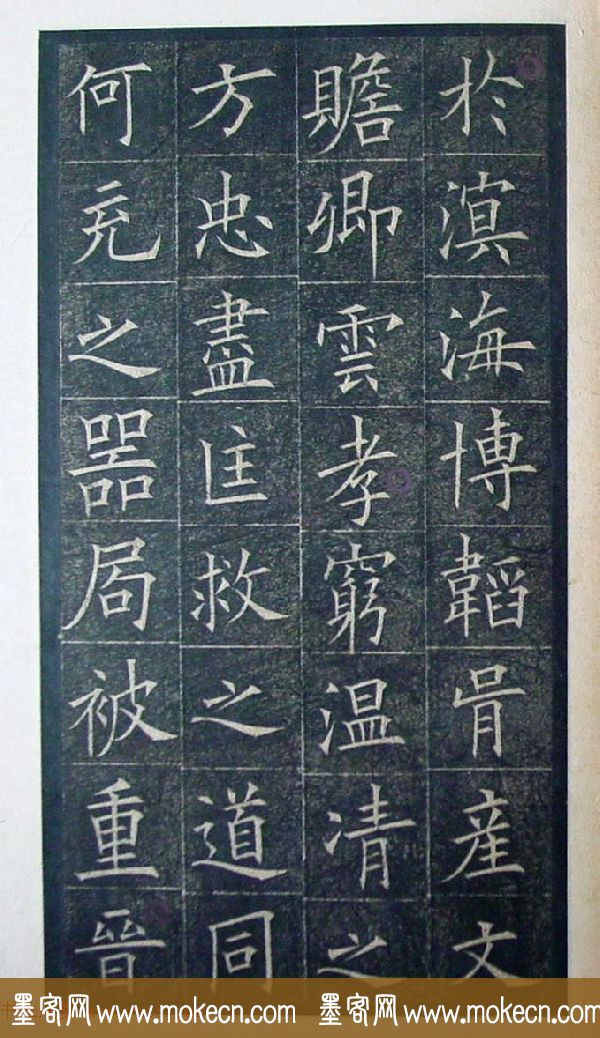 於滇海博韜骨産文
贍卿雲孝窮温凊之
方忠盡匡救之道同
何充之器局被重晉
墨客网 www.mokecn.com 墨客网 www.mokecn.com